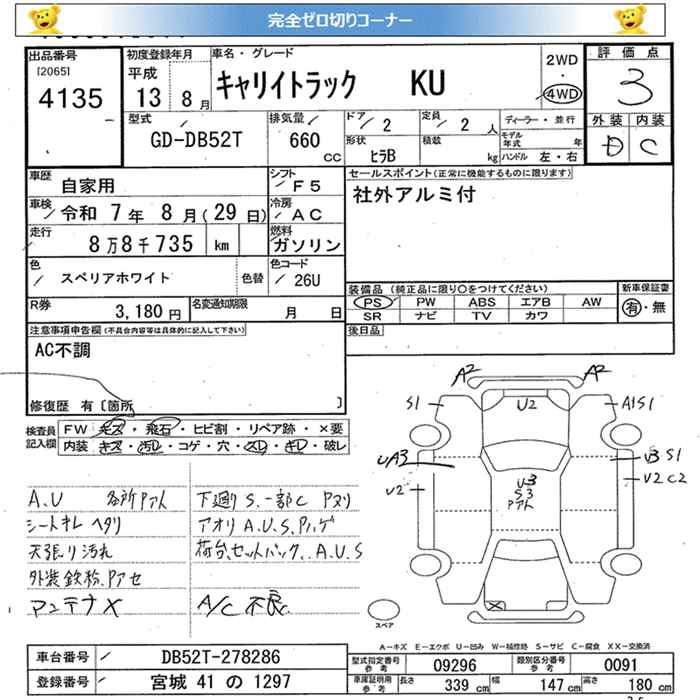 完全ゼロ切りコーナー
出品番号
[2065]
4135
初度登録年月
平成
13 8月
車名・グレード
キャリイトラック KU
2WD
・
4WD
評価点
3
外装 内装
D C
型式
GD-DB52T
排気量
660
CC
ドア
2
定員
2 人
ディーラー・並行
形状
ヒラB
積載
kg
モデル年式 年
ハンドル 左・右
車歴
自家用
シフト
F5
車検
令和 7年 8月(29日)
冷房
AC
走行
8万8千735 km
燃料
ガソリン
色
スペリアホワイト
色替
色コード
26U
R券
3,180円
名変通知期限
月 日
セールスポイント(正常に機能するものに限ります)
社外アルミ付
装備品(純正品に限り○をつけてください)
PS PW ABS エアB AW
SR ナビ TV カワ
新車保証書
有・無
後日品
注意事項申告欄(不具合内容等は具体的に記入して下さい)
AC不調
修復歴 有〔箇所 〕
検査員
記入欄
FW キズ・飛石・ヒビ割・リペア跡・×要
内装 キズ・汚レ・コゲ・穴・スレ・キレ・破レ
A.U 各所Pアト
シートキレ ヘタリ
天張り汚れ
外装鉄粉.Pアセ
アンテナX
下廻りS.一部C Pヌリ
アオリA.U.S.Pハゲ
荷台.セットバック.A.U.S
A/C 不良
A2 A2
S1 U2 A1S1
UA3 U3 S1
U2 U2C2
U3
S3
Pアト
X
スペア
A−キズ E−エクボ U−凹み W−補修跡 S−サビ C−腐食 XX−交換済
車台番号
DB52T-278286
登録番号
宮城 41 の 1297
型式指定番号
参考
09296
類別区分番号
参考
0091
車庫証明用
参考
長さ 339 cm 幅 147 cm 高さ 180 cm